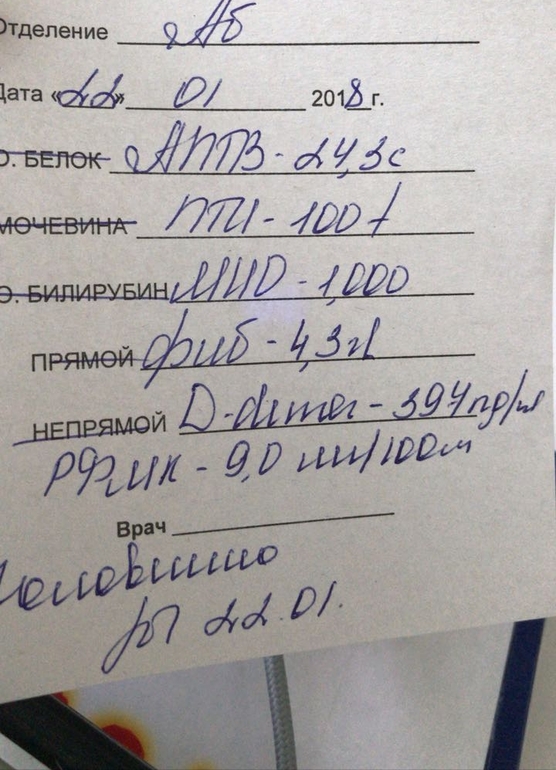 Отделение Аб
Дата «22» 01 2018 г.
О. БЕЛОК АПТВ - 24,3с
МОЧЕВИНА ПТИ - 100%
О. БИЛИРУБИН МНО - 1,000
ПРЯМОЙ фиб - 4,3 г/л
НЕПРЯМОЙ D-dimer - 397 пg/ml
РФМК - 9,0 мг/100мл
Врач
22.01.